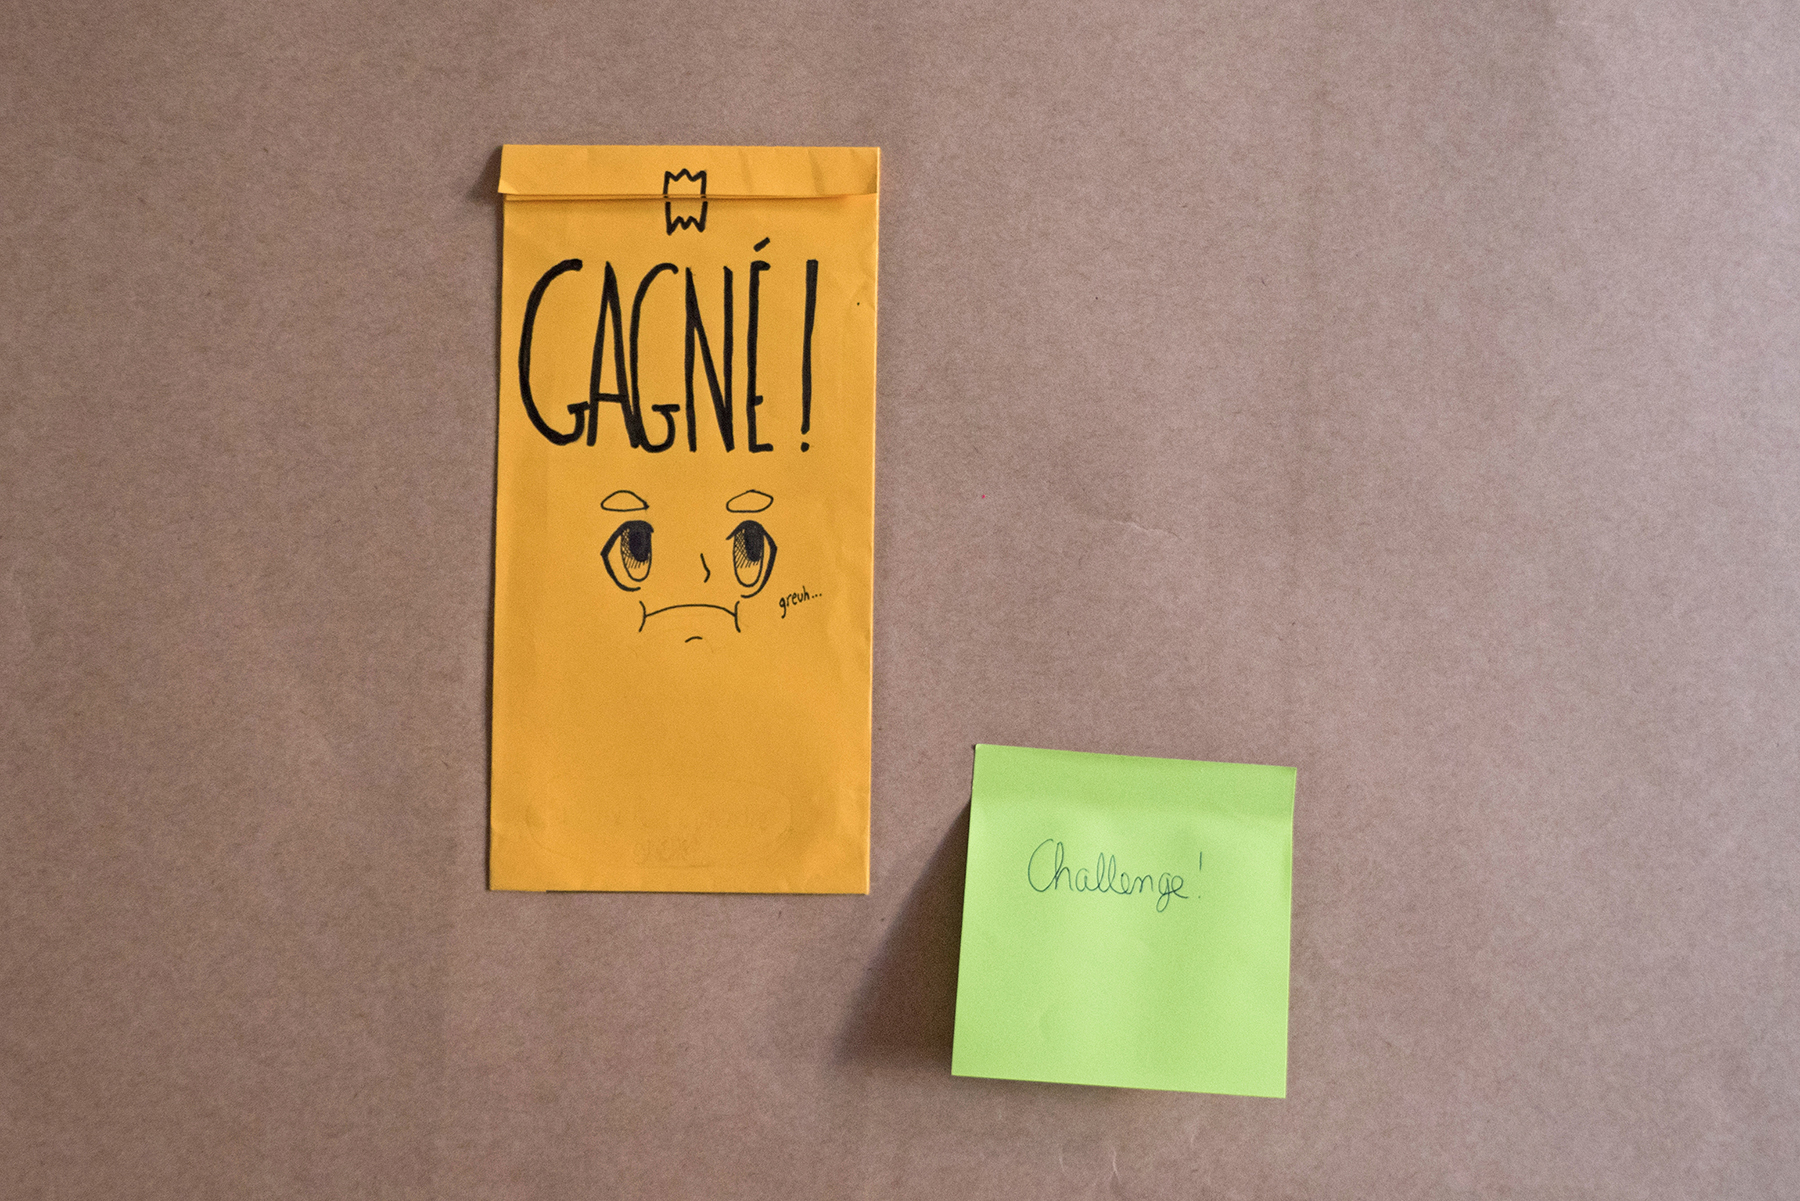 GAGNÉ !
greuh...
Challenge !